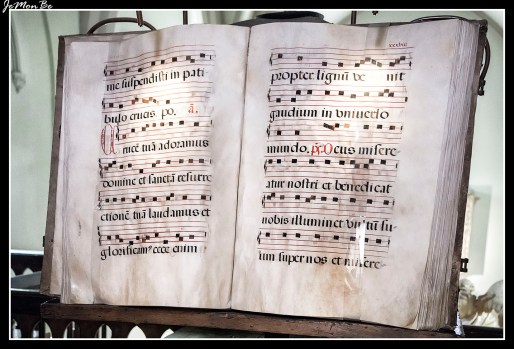 JeMonBe
me suspendisti in pati
bulo crucis. po. a.
Crucē tuā adoramus
domine et sanctā resurre
ctionē tuā laudamus et
glorificam⁹ ecce enim
propter lignū ve nit
gaudium in vniverso
mundo. ps. Deus misere-
atur nostri et benedicat
nobis illuminet vultū su-
um super nos et misere-